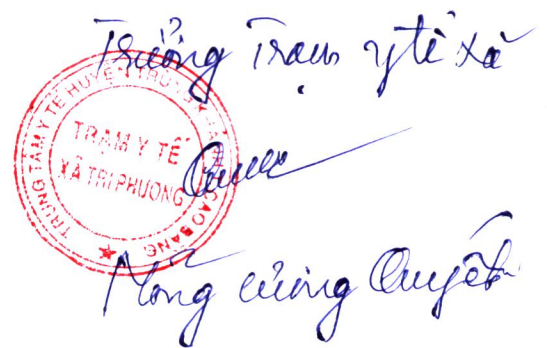 Trưởng Trạm y tế xã
TRUNG TÂM Y TẾ HUYỆN TRÙNG KHÁNH CAO BẰNG
TRẠM Y TẾ
XÃ TRI PHƯƠNG
Nông cương Quyết